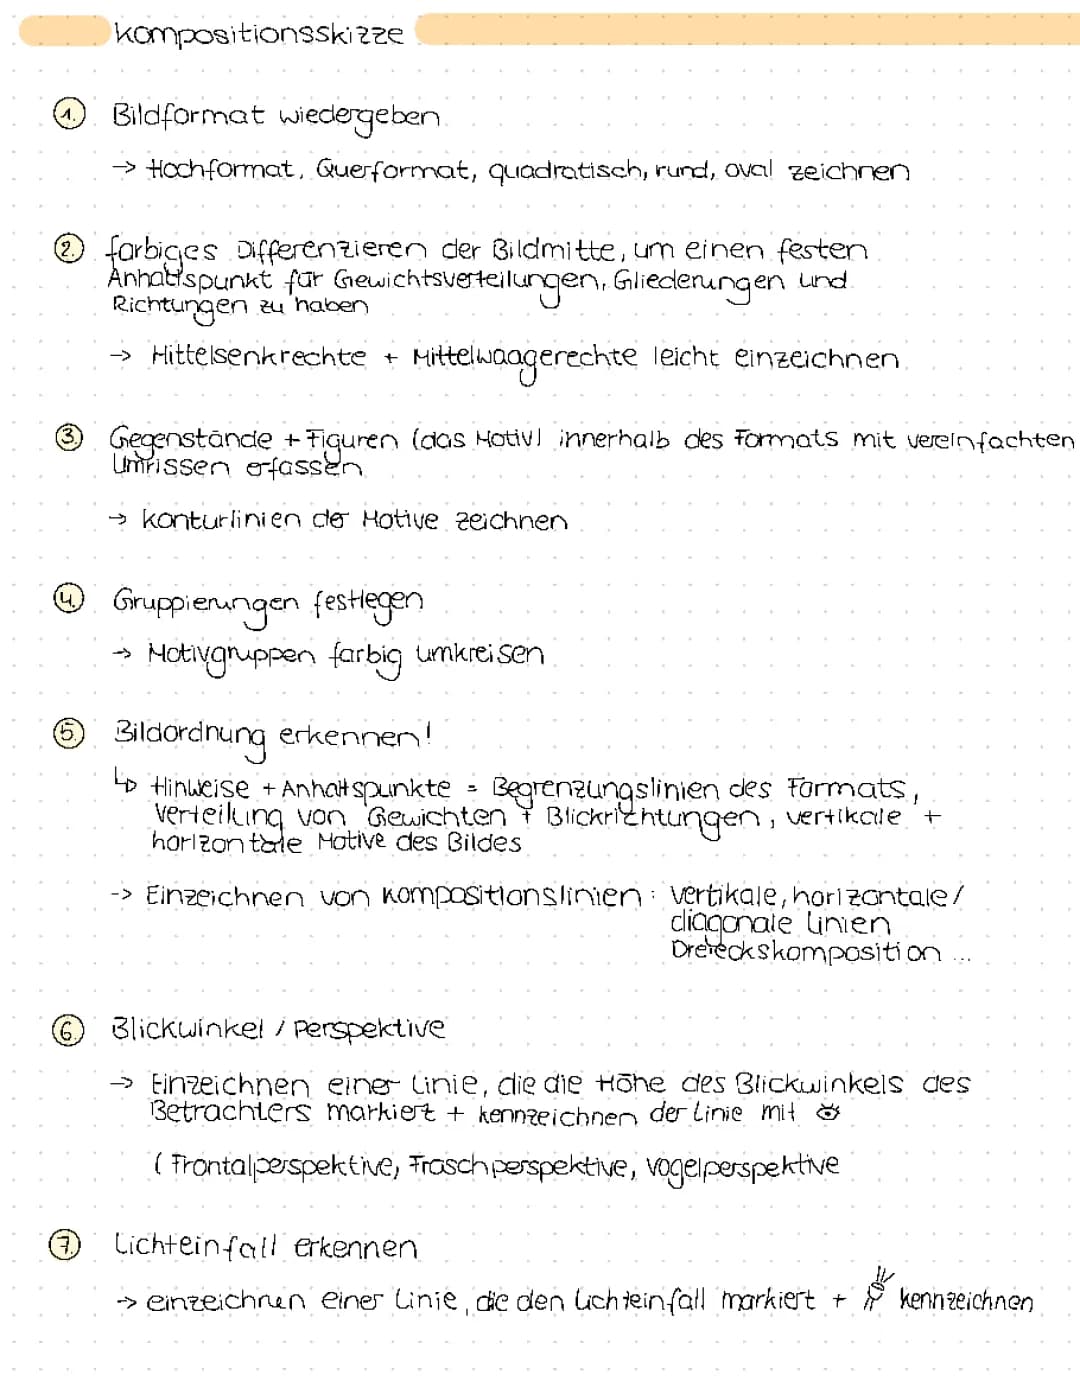 Kompositionsskizze
1. Bildformat wiedergeben
→ Hochformat, Querformat, quadratisch, rund, oval zeichnen
2. farbiges Differenzieren der Bildmitte, um einen festen
Anhaltspunkt für Gewichtsverteilungen, Gliederungen und
Richtungen zu haben
→ Mittelsenkrechte + Mittelwaagerechte leicht einzeichnen
3. Gegenstände + Figuren (das Motiv) innerhalb des Formats mit vereinfachten
Umrissen erfassen
→ Konturlinien der Motive zeichnen
4. Gruppierungen festlegen
→ Motivgruppen farbig umkreisen
5. Bildordnung erkennen!
↳ Hinweise + Anhaltspunkte = Begrenzungslinien des Formats,
Verteilung von Gewichten + Blickrichtungen, vertikale +
horizontale Motive des Bildes
-> Einzeichnen von Kompositionslinien: vertikale, horizontale/
diagonale Linien
Dreieckskomposition ...
6. Blickwinkel / Perspektive
→ Einzeichnen einer Linie, die die Höhe des Blickwinkels des
Betrachters markiert + kennzeichnen der Linie mit
( Frontalperspektive, Froschperspektive, Vogelperspektive
7. Lichteinfall erkennen
→ einzeichnen einer Linie, die den Lichteinfall markiert + kennzeichnen